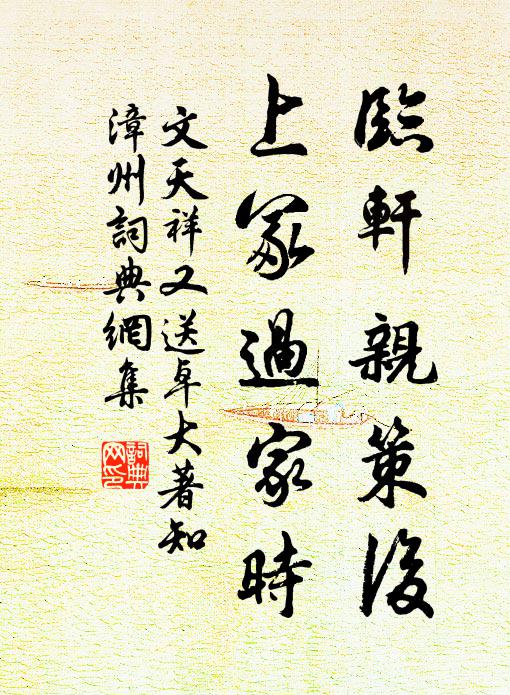 臨軒親策後
上冢過家時
文天祥又送卓大著知
漳州詞典網集
詞典网印